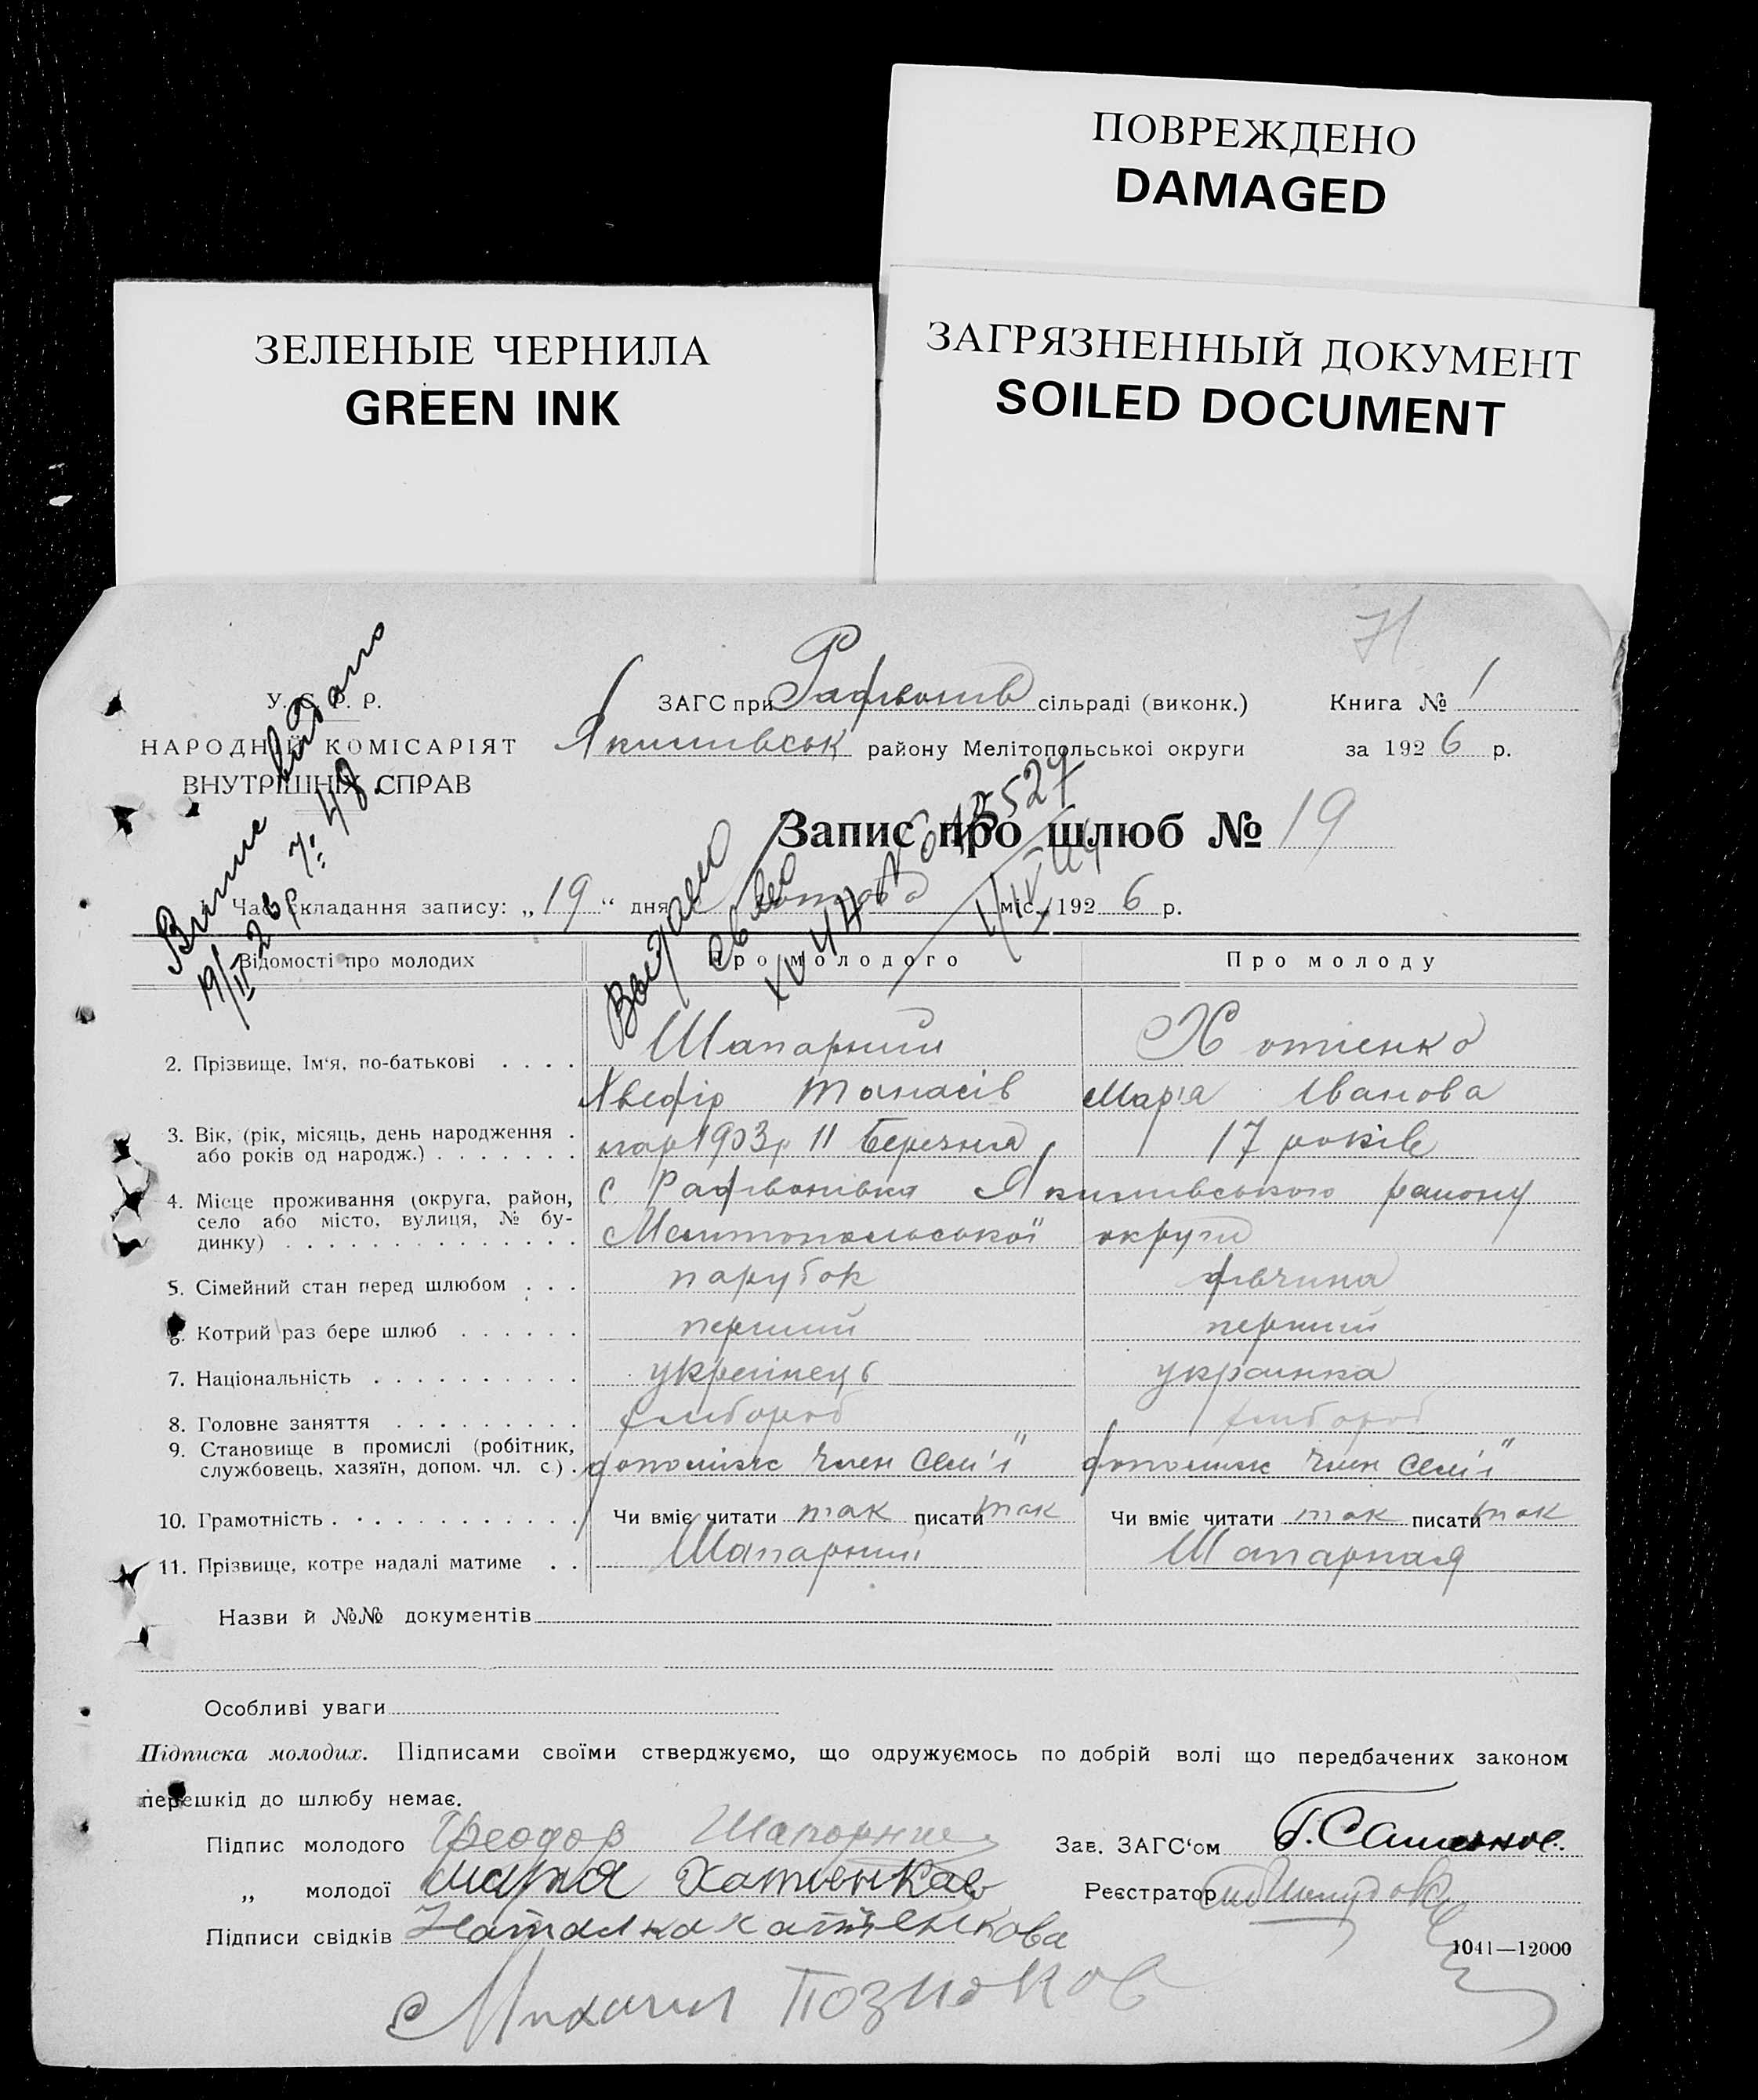 ПОВРЕЖДЕНО
DAMAGED
ЗЕЛЕНЫЕ ЧЕРНИЛА
GREEN INK
ЗАГРЯЗНЕННЫЙ ДОКУМЕНТ
SOILED DOCUMENT
У. С. Р. Р.
НАРОДНІЙ КОМІСАРІЯТ
ВНУТРІШНІХ СПРАВ
ЗАГС при сільраді (виконк.)
Якимівськ району Мелітопольської округи
Книга № 1
за 1926 р.
Запис про шлюб № 19
Час складання запису: „19“ дня лютого міс. 1926 р.
Відомості про молодих
Про молодого
Про молоду
2. Прізвище, Ім'я, по-батькові
Шапарний
Хотієнко
Хведір Танасів
Мар'я Іванова
3. Вік, (рік, місяць, день народження або років од народж.)
нар 1903 р 11 березня
17 років
4. Місце проживання (округа, район, село або місто, вулиця, № будинку)
с Радівонівка Якимівського району
Мелітопольської округи
5. Сімейний стан перед шлюбом
парубок
дівчина
6. Котрий раз бере шлюб
перший
перший
7. Національність
українець
украинка
8. Головне заняття
хлібороб
хлібороб
9. Становище в промислі (робітник, службовець, хазяїн, допом. чл. с.)
допоміжн член сем'ї
допоміжн член сем'ї
10. Грамотність
Чи вміє читати так писати так
Чи вміє читати так писати так
11. Прізвище, котре надалі матиме
Шапарний
Шапарная
Назви й №№ документів
Особливі уваги
Підписка молодих. Підписами своїми стверджуємо, що одружуємось по добрій волі що передбачених законом
перешкід до шлюбу немає.
Підпис молодого Феодор Шапорний
Зав. ЗАГС'ом
„ молодої Мария
Реєстратор
Підписи свідків
1041—12000
Михаил Позняков